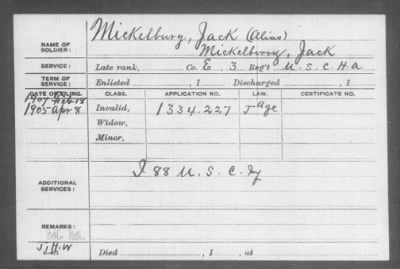 Mickelburg, Jack (Alias)
NAME OF SOLDIER: Mickelberry, Jack
SERVICE: Late rank, Co. E, 3 Reg't U.S.C.H.A
TERM OF SERVICE: Enlisted , 1 Discharged , 1
DATE OF FILING. CLASS. APPLICATION NO. LAW. CERTIFICATE NO.
1907 Feb. 18
1905 Apr 8 Invalid, 1334.227 J age
Widow,
Minor,
ADDITIONAL SERVICES: I 88 U.S.C. Iny
REMARKS:
J.H.W Died , 1 , at